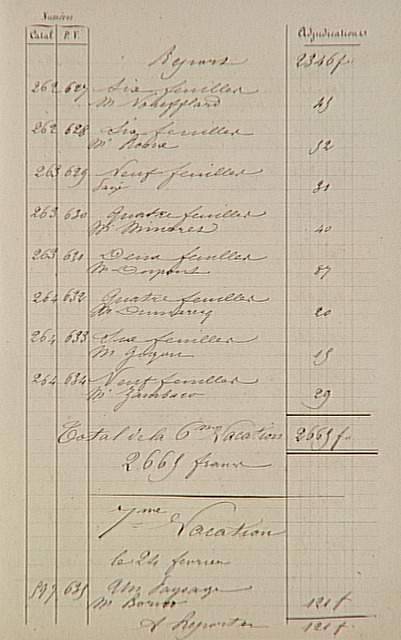 Numéros
Catal P.V. Adjudications
Report 2346 f.
262 627 Six feuilles
Mr 45
262 628 Six feuilles
Mr 52
263 629 Neuf feuilles
31
263 630 Quatre feuilles
Mr Minores 40
263 631 Deux feuilles
Mr Dupont 87
264 632 Quatre feuilles
Mr 20
264 633 Six feuilles
Mr 15
264 634 Neuf feuilles
Mr Zambaco 29
Total de la 6me Vacation 2665 f.
2.665 francs
7me Vacation
le 24 fevrier
597 635 Un Paysage
Mr 121 f
A Reporter 121 f.